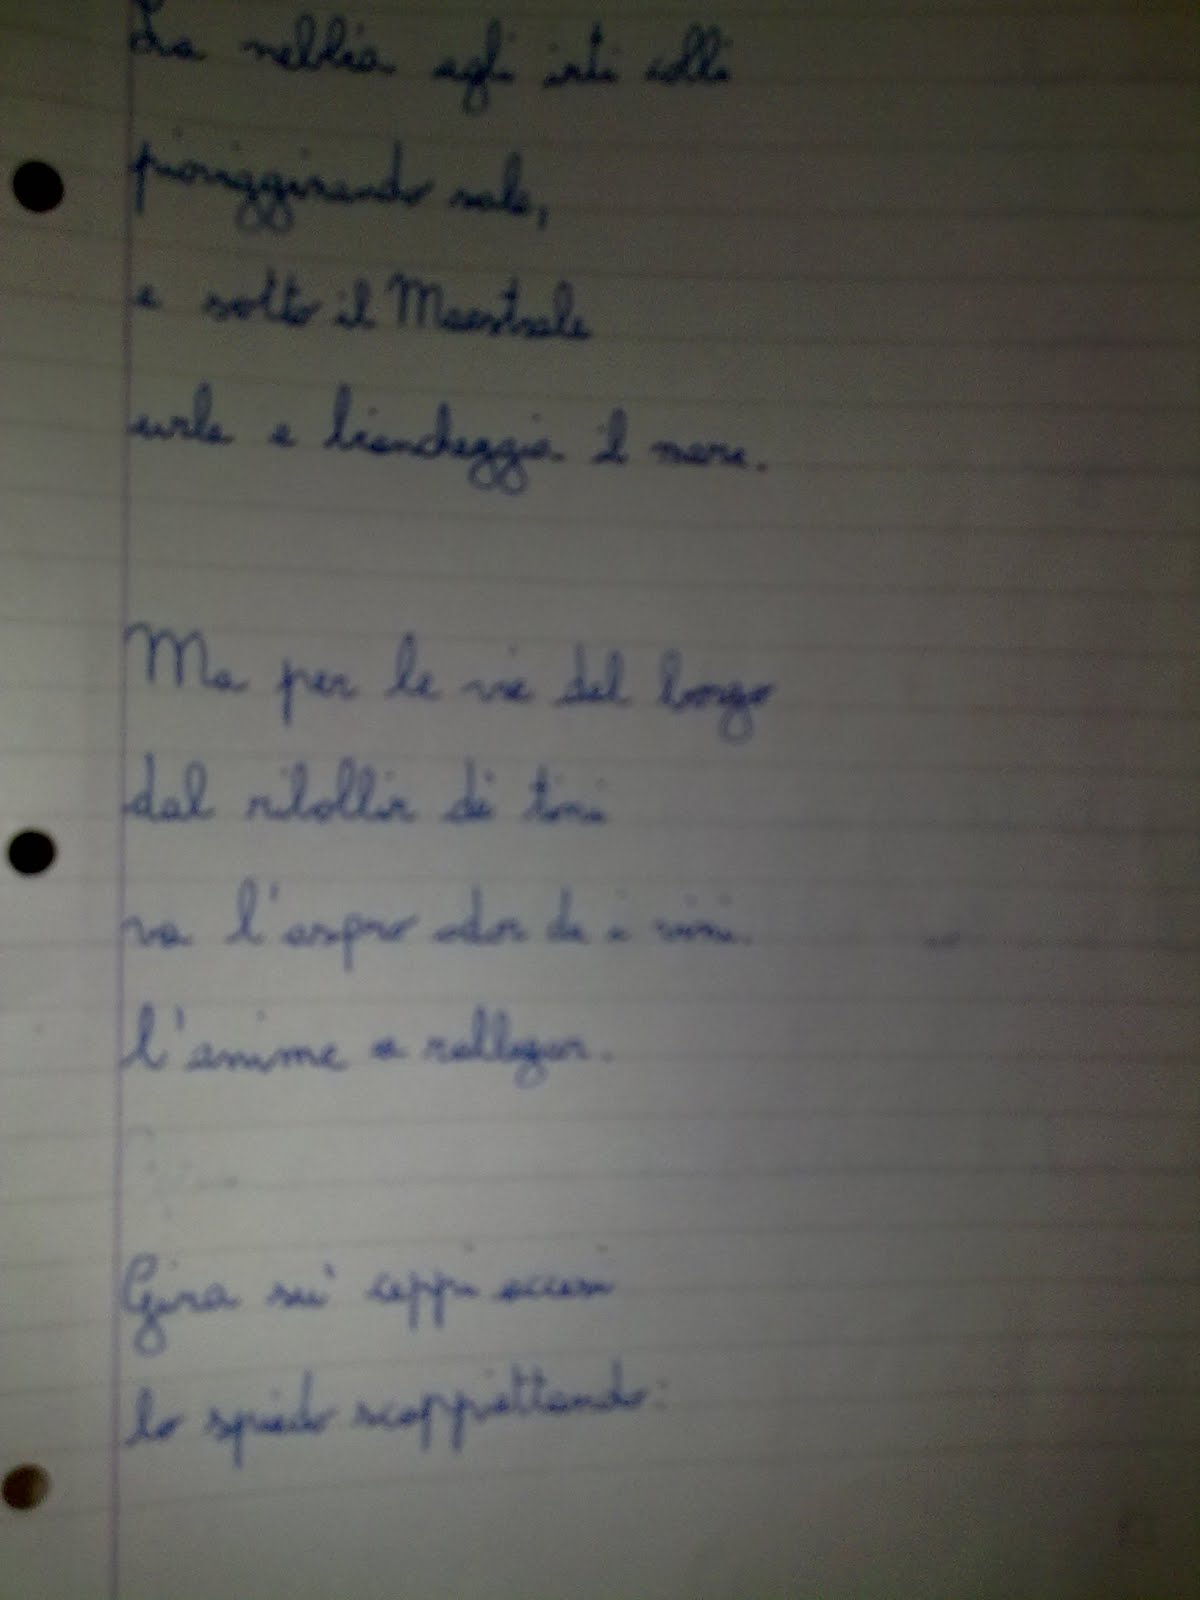 La nebbia agli irti colli
piovigginando sale,
e sotto il Maestrale
urla e biancheggia il mare.
Ma per le vie del borgo
dal ribollir de tini
va l'aspro odor de i vini
l'anime a rallegrar.
Gira su' ceppi accesi
lo spiedo scoppiettando: